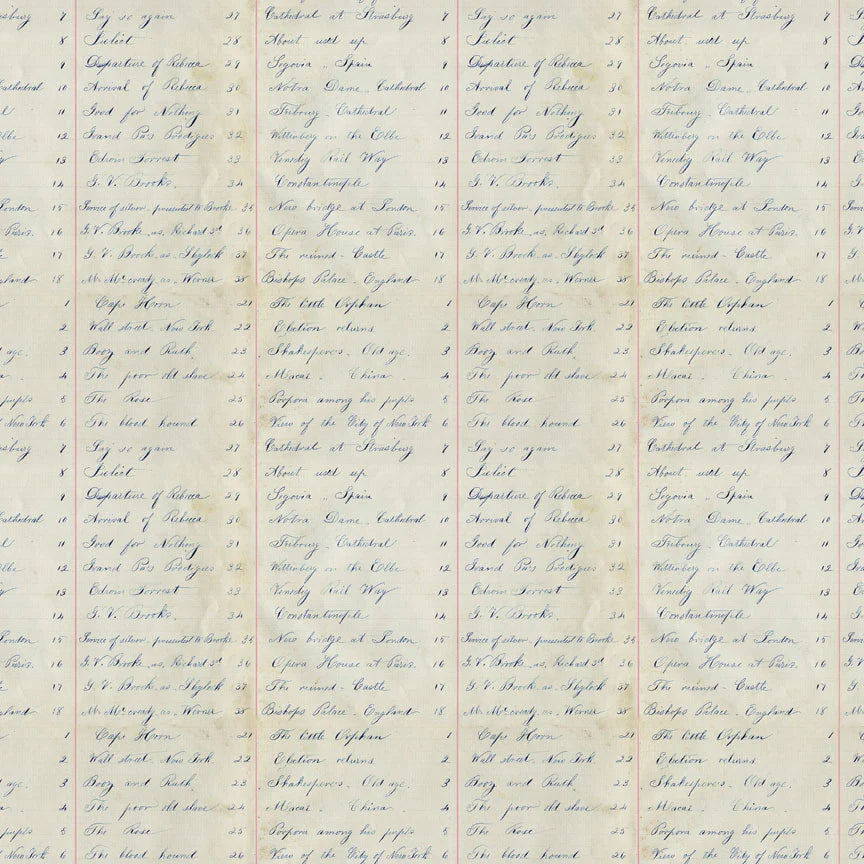 sburg 7 Say so again 27 Cathedral at Strasburg 7 Say so again 27 Cathedral at Strasburg 7
8 Juliet 28 About used up 8 Juliet 28 About used up 8
9 Departure of Rebecca 29 Segovia „ Spain 9 Departure of Rebecca 29 Segovia „ Spain 9
Cathedral 10 Arrival of Rebecca 30 Notra Dame . Cathedral 10 Arrival of Rebecca 30 Notra Dame . Cathedral 10
11 Good for Nothing 31 Fribourg . Cathedral 11 Good for Nothing 31 Fribourg . Cathedral 11
Elbe 12 Grand Pa's Prodigies 32 Wittenberg on the Elbe 12 Grand Pa's Prodigies 32 Wittenberg on the Elbe 12
13 Edwin Forrest 33 Venedig Rail Way 13 Edwin Forrest 33 Venedig Rail Way 13
14 G. V. Brooke. 34 Constantinople 14 G. V. Brooke. 34 Constantinople 14
London 15 Service of silver, presented to Brooke 35 New bridge at London 15 Service of silver, presented to Brooke 35 New bridge at London 15
Paris. 16 G. V. Brooke . as . Richard 3d 36 Opera House at Paris. 16 G. V. Brooke . as . Richard 3d 36 Opera House at Paris. 16
17 G. V. Brooke . as . Shylock 37 The ruined - Castle 17 G. V. Brooke . as . Shylock 37 The ruined - Castle 17
England 18 Mr. McCready . as . Werner 38 Bishops Palace . England 18 Mr. McCready . as . Werner 38 Bishops Palace . England 18
1 Cape Horn 21 The little Orphan 1 Cape Horn 21 The little Orphan 1
2 Wall street. New York. 22 Election returns 2 Wall street. New York. 22 Election returns 2
age. 3 Booz and Ruth. 23 Shakespere's . Old age. 3 Booz and Ruth. 23 Shakespere's . Old age. 3
4 The poor old slave 24 Macai . China . 4 The poor old slave 24 Macai . China . 4
pupils 5 The Rose 25 Porpora among his pupils 5 The Rose 25 Porpora among his pupils 5
of New York 6 The blood hound 26 View of the City of New York 6 The blood hound 26 View of the City of New York 6
sburg 7 Say so again 27 Cathedral at Strasburg 7 Say so again 27 Cathedral at Strasburg 7
8 Juliet 28 About used up 8 Juliet 28 About used up 8
9 Departure of Rebecca 29 Segovia „ Spain 9 Departure of Rebecca 29 Segovia „ Spain 9
Cathedral 10 Arrival of Rebecca 30 Notra Dame . Cathedral 10 Arrival of Rebecca 30 Notra Dame . Cathedral 10
11 Good for Nothing 31 Fribourg . Cathedral 11 Good for Nothing 31 Fribourg . Cathedral 11
Elbe 12 Grand Pa's Prodigies 32 Wittenberg on the Elbe 12 Grand Pa's Prodigies 32 Wittenberg on the Elbe 12
13 Edwin Forrest 33 Venedig Rail Way 13 Edwin Forrest 33 Venedig Rail Way 13
14 G. V. Brooke. 34 Constantinople 14 G. V. Brooke. 34 Constantinople 14
London 15 Service of silver, presented to Brooke 35 New bridge at London 15 Service of silver, presented to Brooke 35 New bridge at London 15
Paris. 16 G. V. Brooke . as . Richard 3d 36 Opera House at Paris. 16 G. V. Brooke . as . Richard 3d 36 Opera House at Paris. 16
17 G. V. Brooke . as . Shylock 37 The ruined - Castle 17 G. V. Brooke . as . Shylock 37 The ruined - Castle 17
England 18 Mr. McCready . as . Werner 38 Bishops Palace . England 18 Mr. McCready . as . Werner 38 Bishops Palace . England 18
1 Cape Horn 21 The little Orphan 1 Cape Horn 21 The little Orphan 1
2 Wall street. New York. 22 Election returns 2 Wall street. New York. 22 Election returns 2
age. 3 Booz and Ruth. 23 Shakespere's . Old age. 3 Booz and Ruth. 23 Shakespere's . Old age. 3
4 The poor old slave 24 Macai . China . 4 The poor old slave 24 Macai . China . 4
pupils 5 The Rose 25 Porpora among his pupils 5 The Rose 25 Porpora among his pupils 5
of New York 6 The blood hound 26 View of the City of New York 6 The blood hound 26 View of the City of New York 6